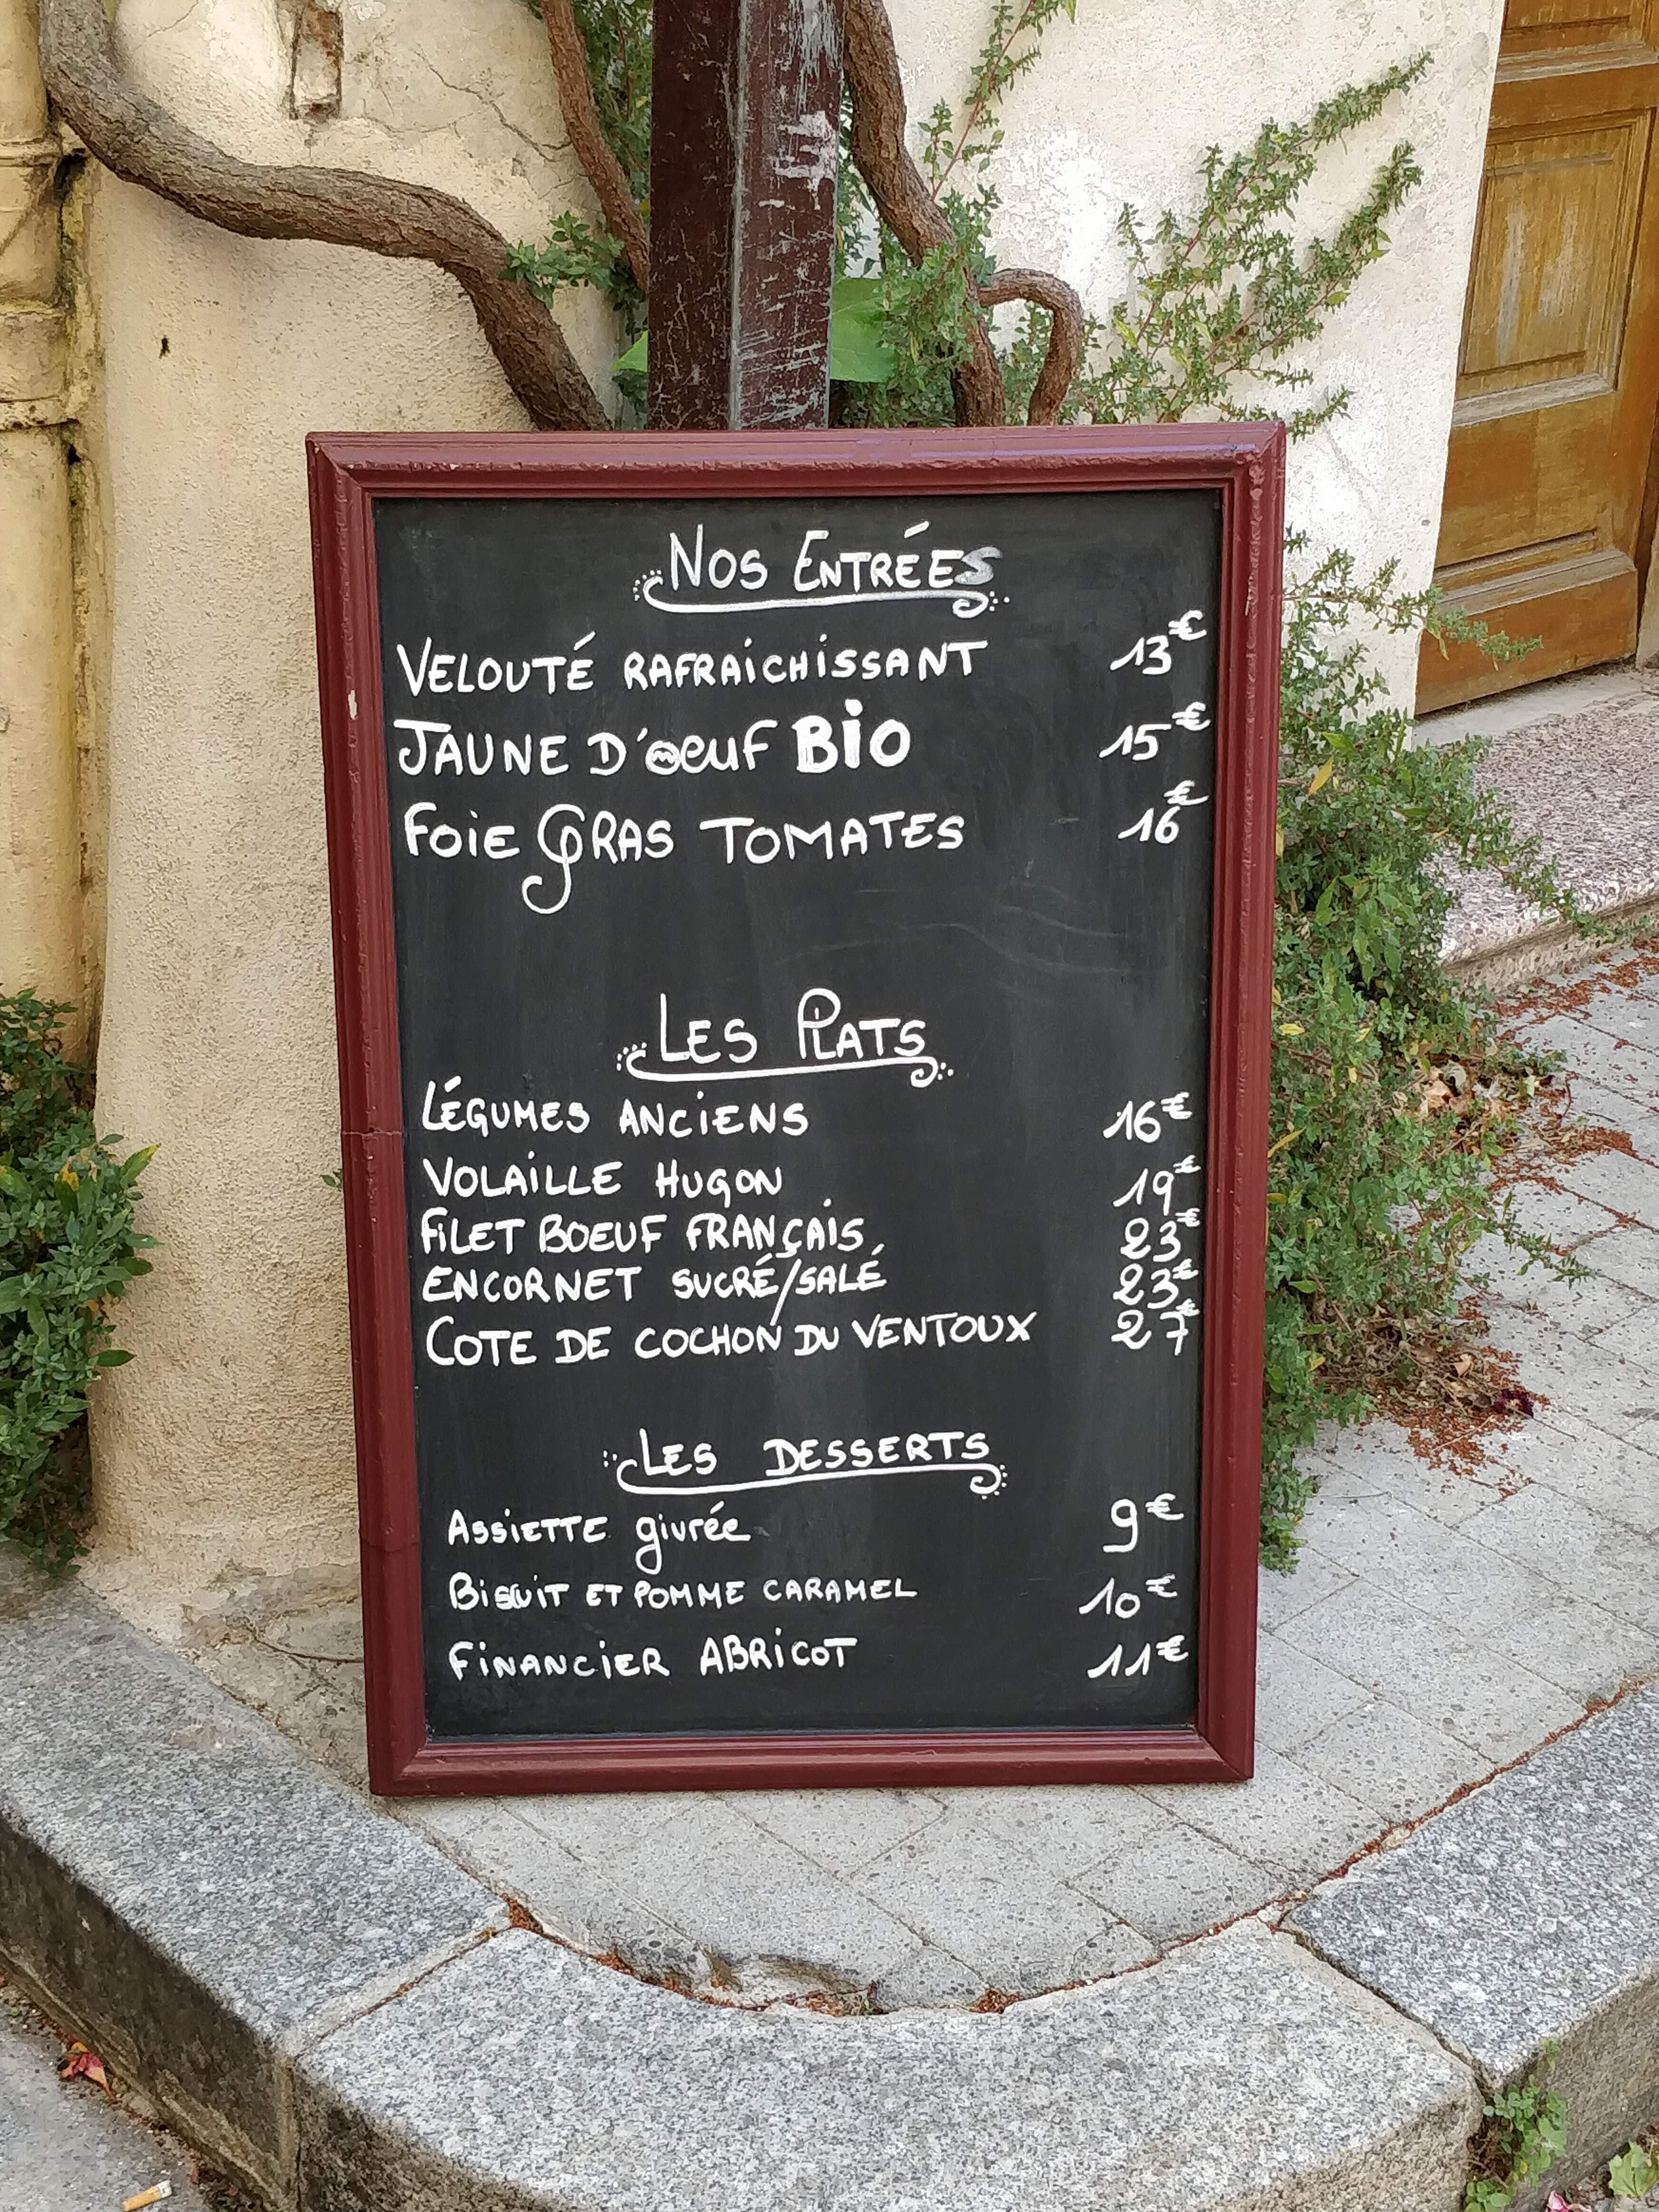 NOS ENTRÉES
VELOUTÉ RAFRAiCHiSSANT 13€
JAUNE D'OEUF BiO 15€
FOiE GRAS TOMATES 16€
LES PLATS
LÉGUMES ANCiENS 16€
VOLAiLLE HUGON 19€
FiLET BOEUF FRANÇAiS 23€
ENCORNET SUCRÉ/SALÉ 23€
COTE DE COCHON DU VENTOUX 27€
LES DESSERTS
ASSiETTE givrée 9€
BiSCUiT ET POMME CARAMEL 10€
FiNANCiER ABRiCOT 11€